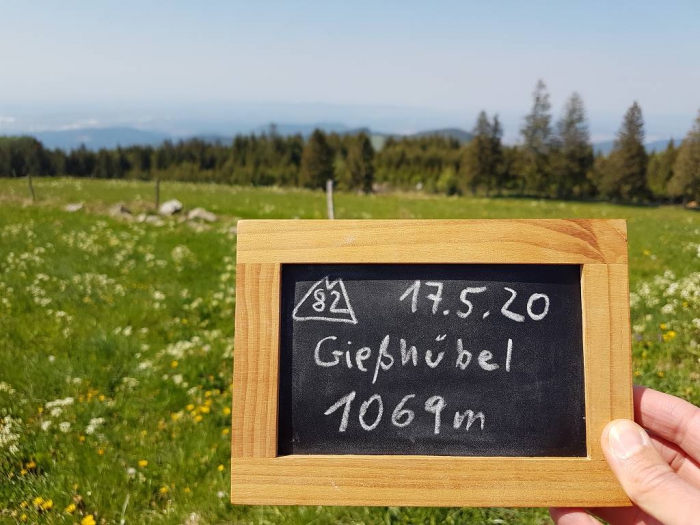 82 17.5.20
Gießhübel
1069m